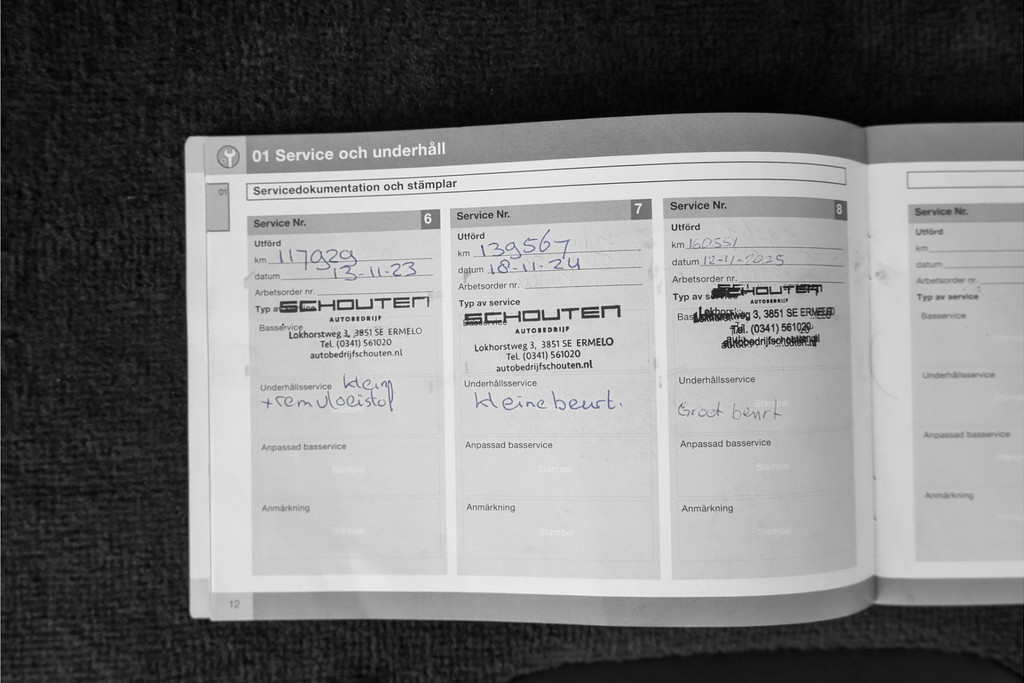 01 Service och underhåll
01
Servicedokumentation och stämplar
Service Nr. 6
Utförd
km 117929
datum 13-11-23
Arbetsorder nr.
Typ a
SCHOUTEN
AUTOBEDRIJF
Basservice
Lokhorstweg 3, 3851 SE ERMELO
Tel. (0341) 561020
autobedrijfschouten.nl
Underhållsservice klein
+remvloeistof
Anpassad basservice
Stämpel
Anmärkning
Stämpel
Service Nr. 7
Utförd
km 139567
datum 18-11-24
Arbetsorder nr.
Typ av service
SCHOUTEN
Basservice
AUTOBEDRIJF
Lokhorstweg 3, 3851 SE ERMELO
Tel. (0341) 561020
autobedrijfschouten.nl
Underhållsservice
kleine beurt.
Anpassad basservice
Stämpel
Anmärkning
Stämpel
Service Nr. 8
Utförd
km 160551
datum 12-11-2025
Arbetsorder nr.
SCHOUTEN
Typ av
AUTOBEDRIJF
Bas
Lokhorstweg 3, 3851 SE ERMELO
Tel. (0341) 561020
autobedrijfschouten.nl
Underhållsservice
Groot beurt
Anpassad basservice
Stämpel
Anmärkning
Stämpel
12
Service Nr.
Utförd
km
datum
Arbetsorder nr.
Typ av service
Basservice
Underhållsservice
Anpassad basservice
Anmärkning